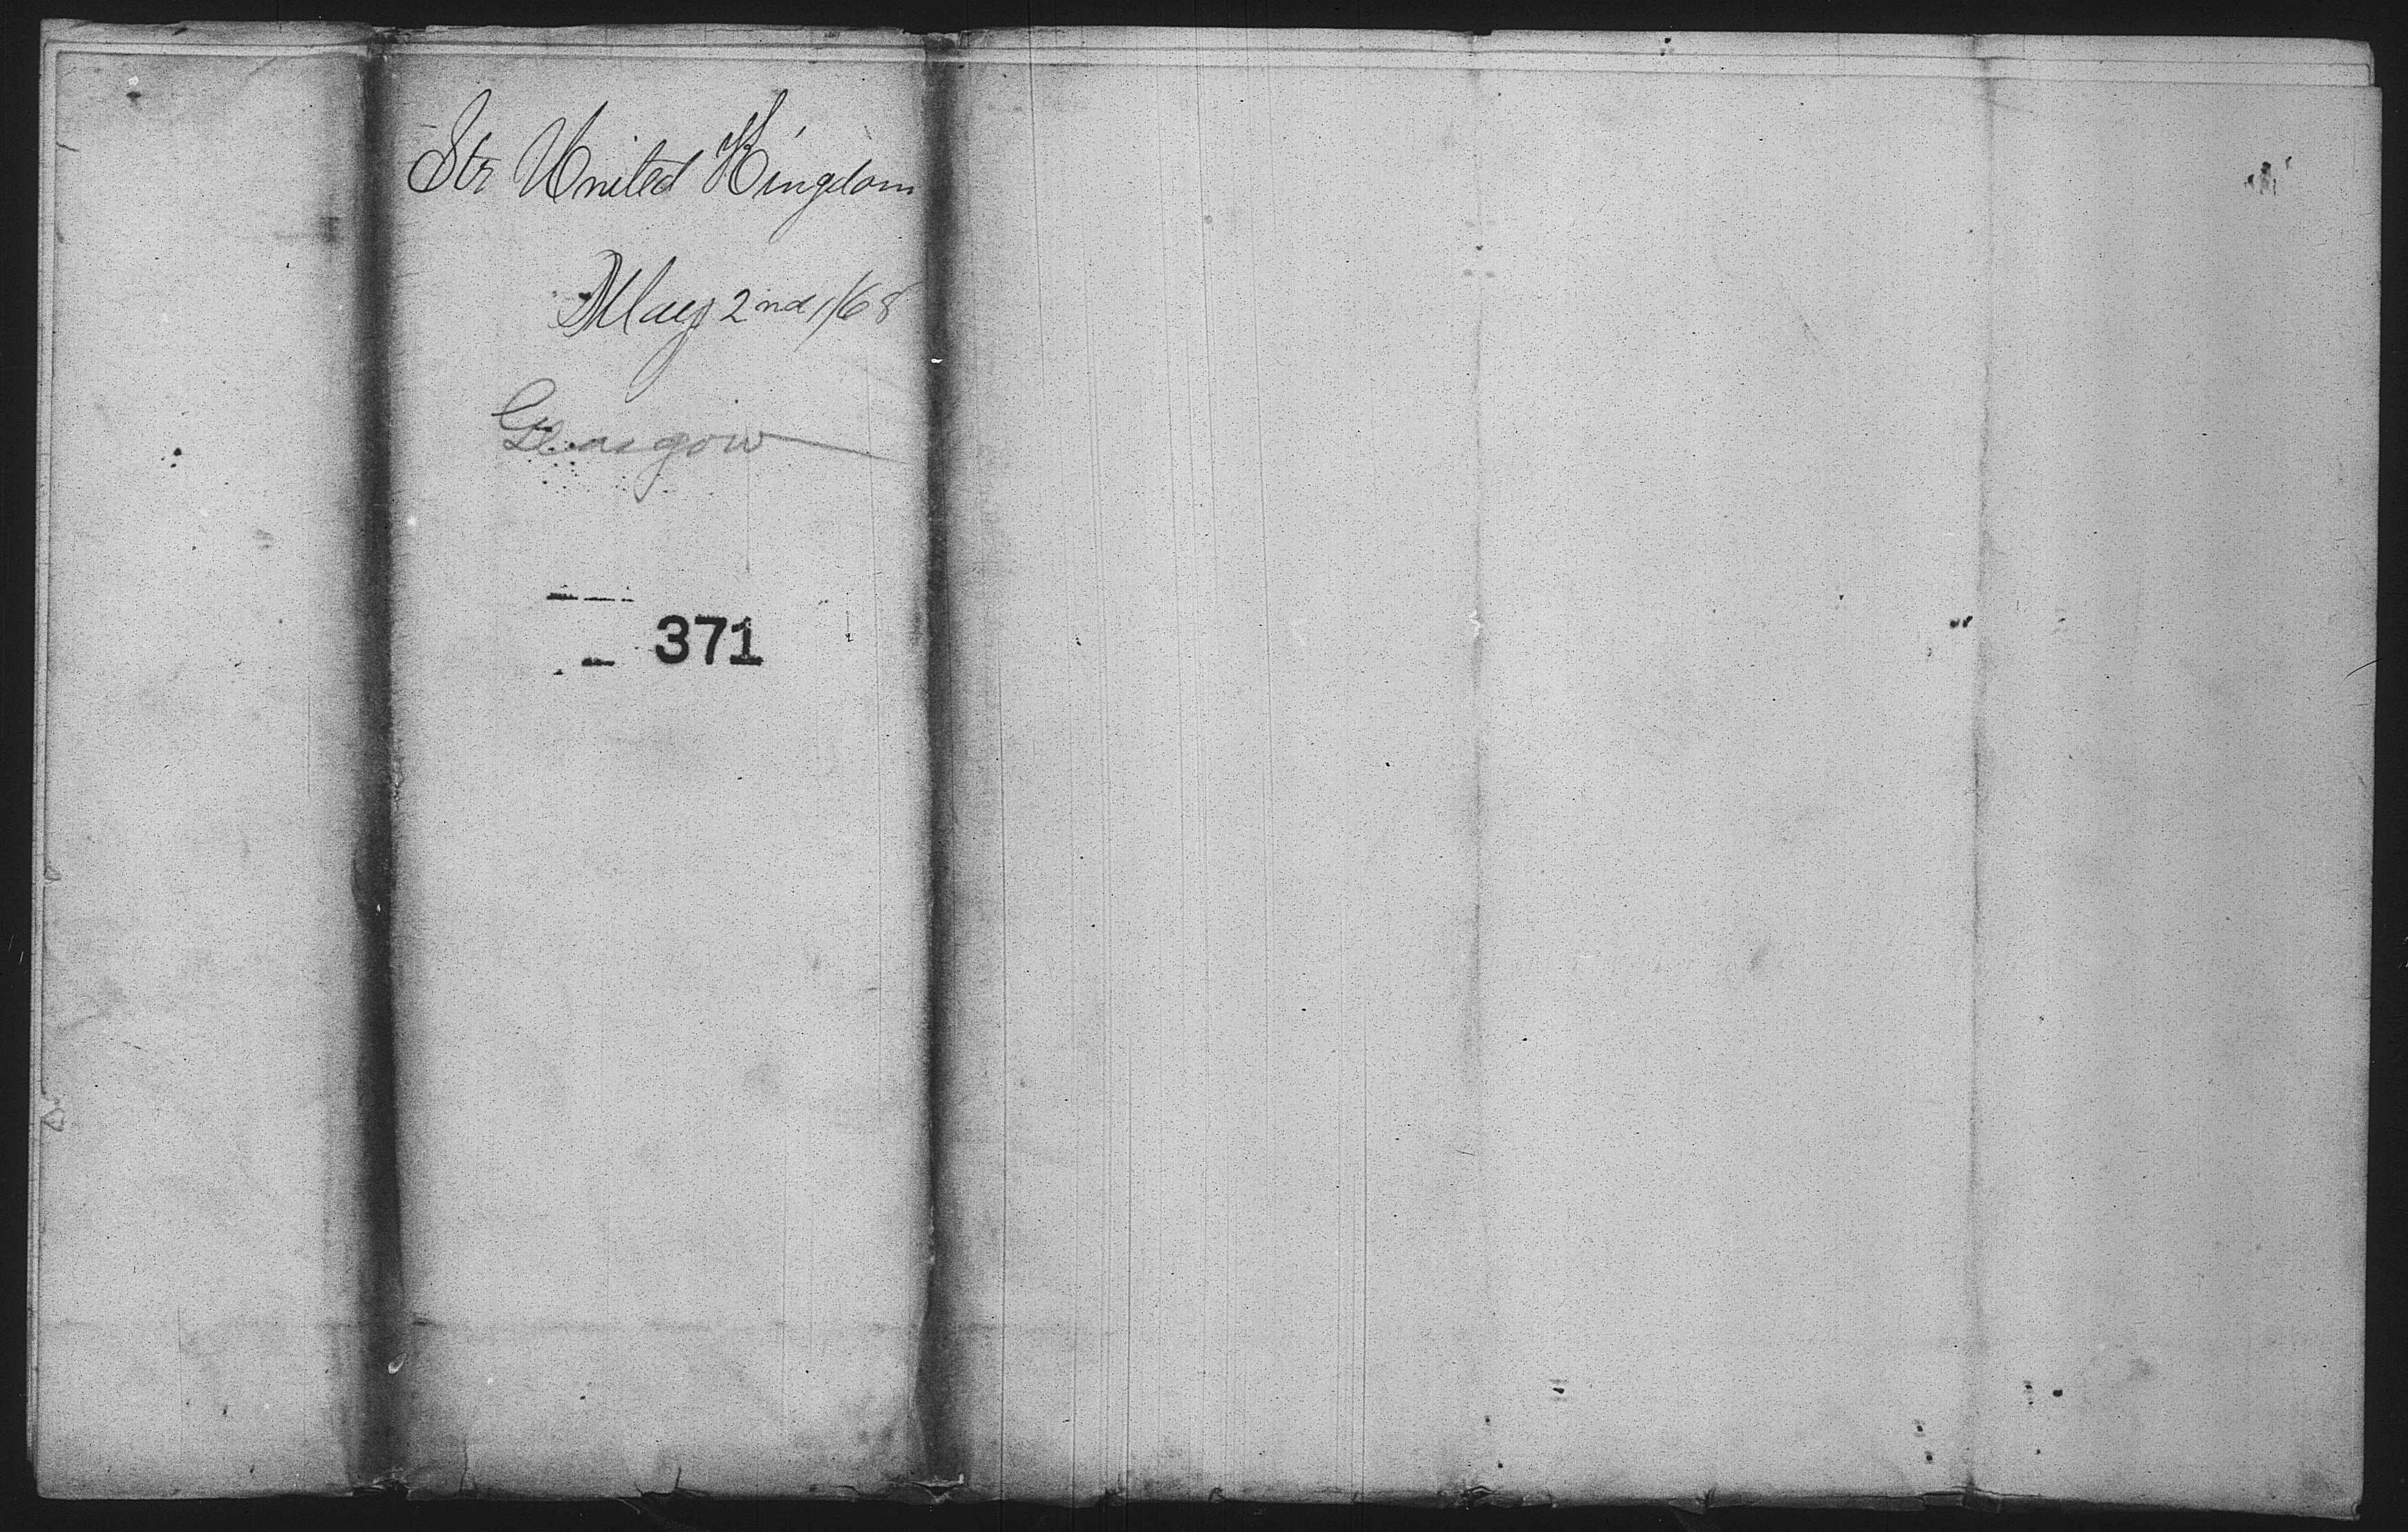 Str United Kingdom
May 2nd/68
Glasgow
371